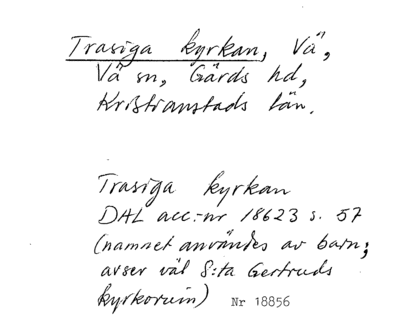 Trasiga kyrkan, Vä,
Vä sn, Gärds hd,
Kristianstads län.
Trasiga kyrkan
DAL acc.-nr 18623 s. 57
(namnet användes av barn;
avser väl S:ta Gertruds
kyrkoruin) Nr 18856